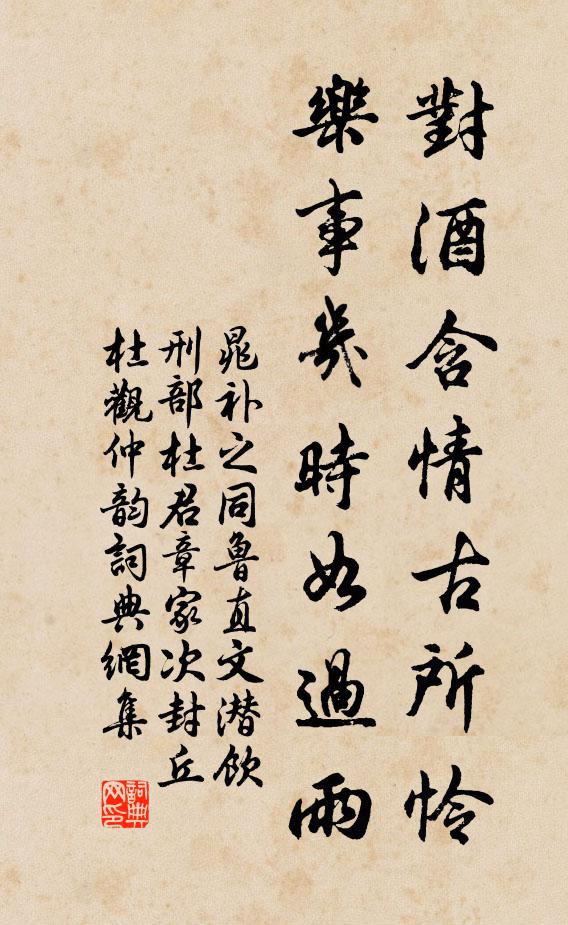 對酒含情古所怜
樂事幾時如過雨
晁补之同鲁直文潜飲
刑部杜君章家次封丘
杜觀仲韵詞典網集
詞典网印